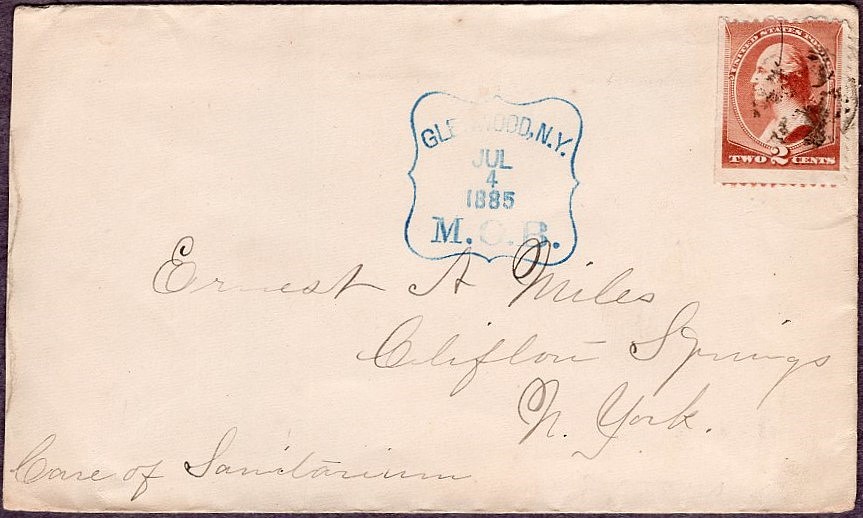 UNITED STATES POSTAGE
TWO 2 CENTS
GLENWOOD, N.Y.
JUL
4
1885
M. O. B.
Ernest A Miles
Clifton Springs
N. York.
Care of Sanitarium